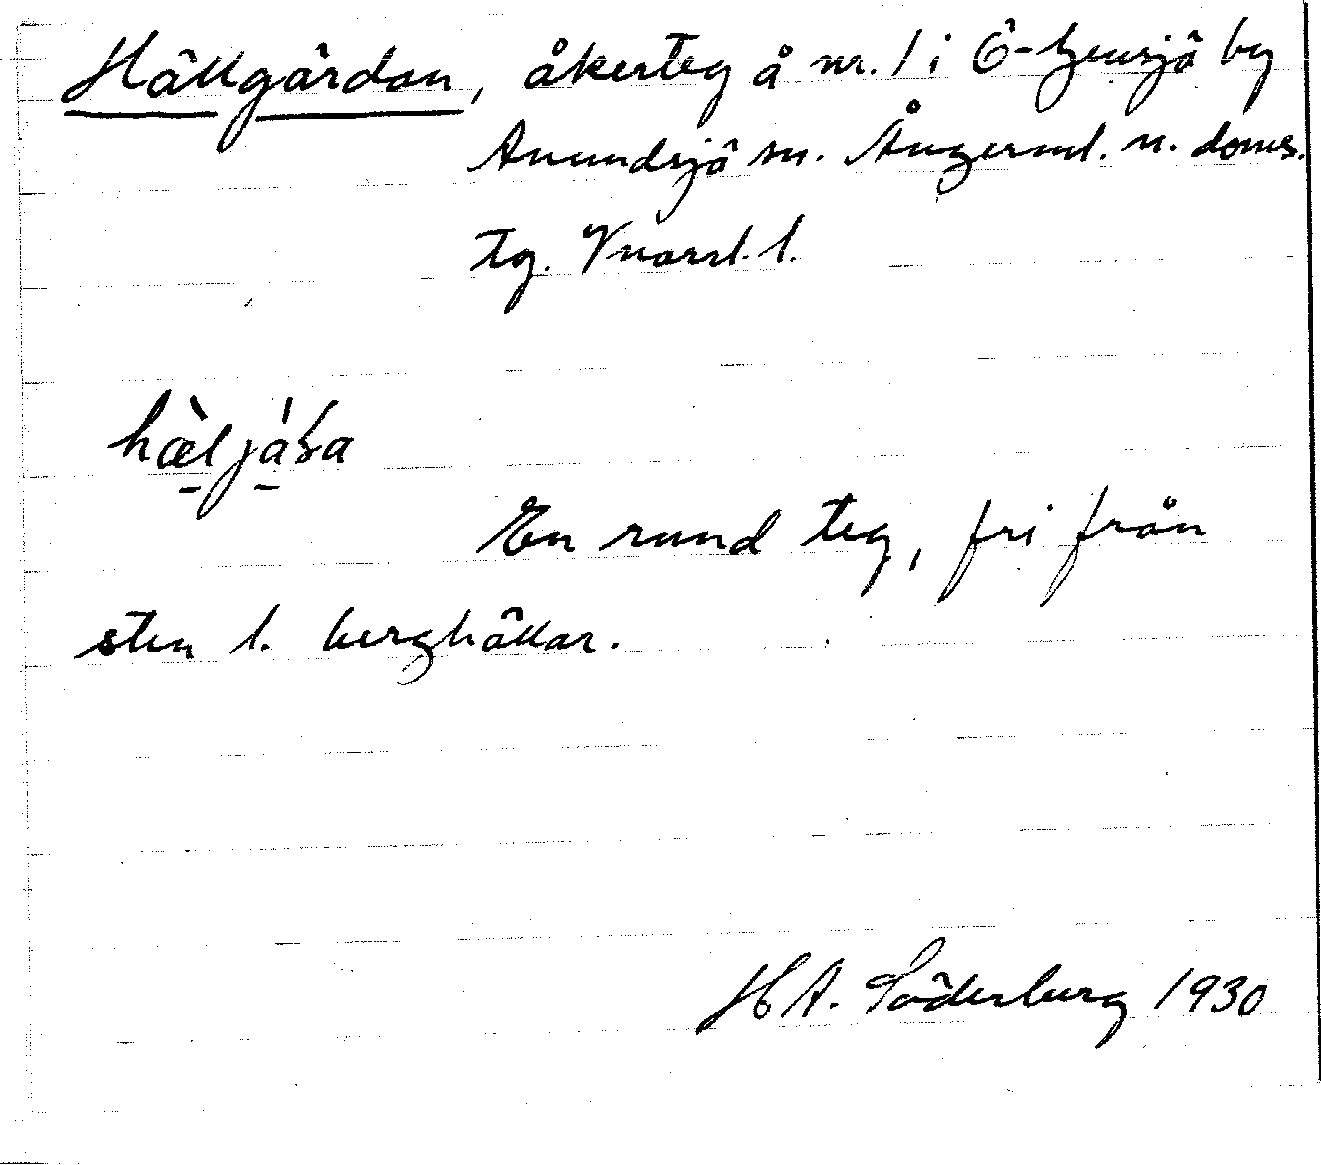 Hällgärdan, åkerteg å nr. 1 i Ö-Gensjö by
Anundsjö sn. Ångerml. n. doms.
tg. Vnorrl. l.
hæljáʃa
En rund teg, fri från
sten l. berghällar.
H A. Söderberg 1930